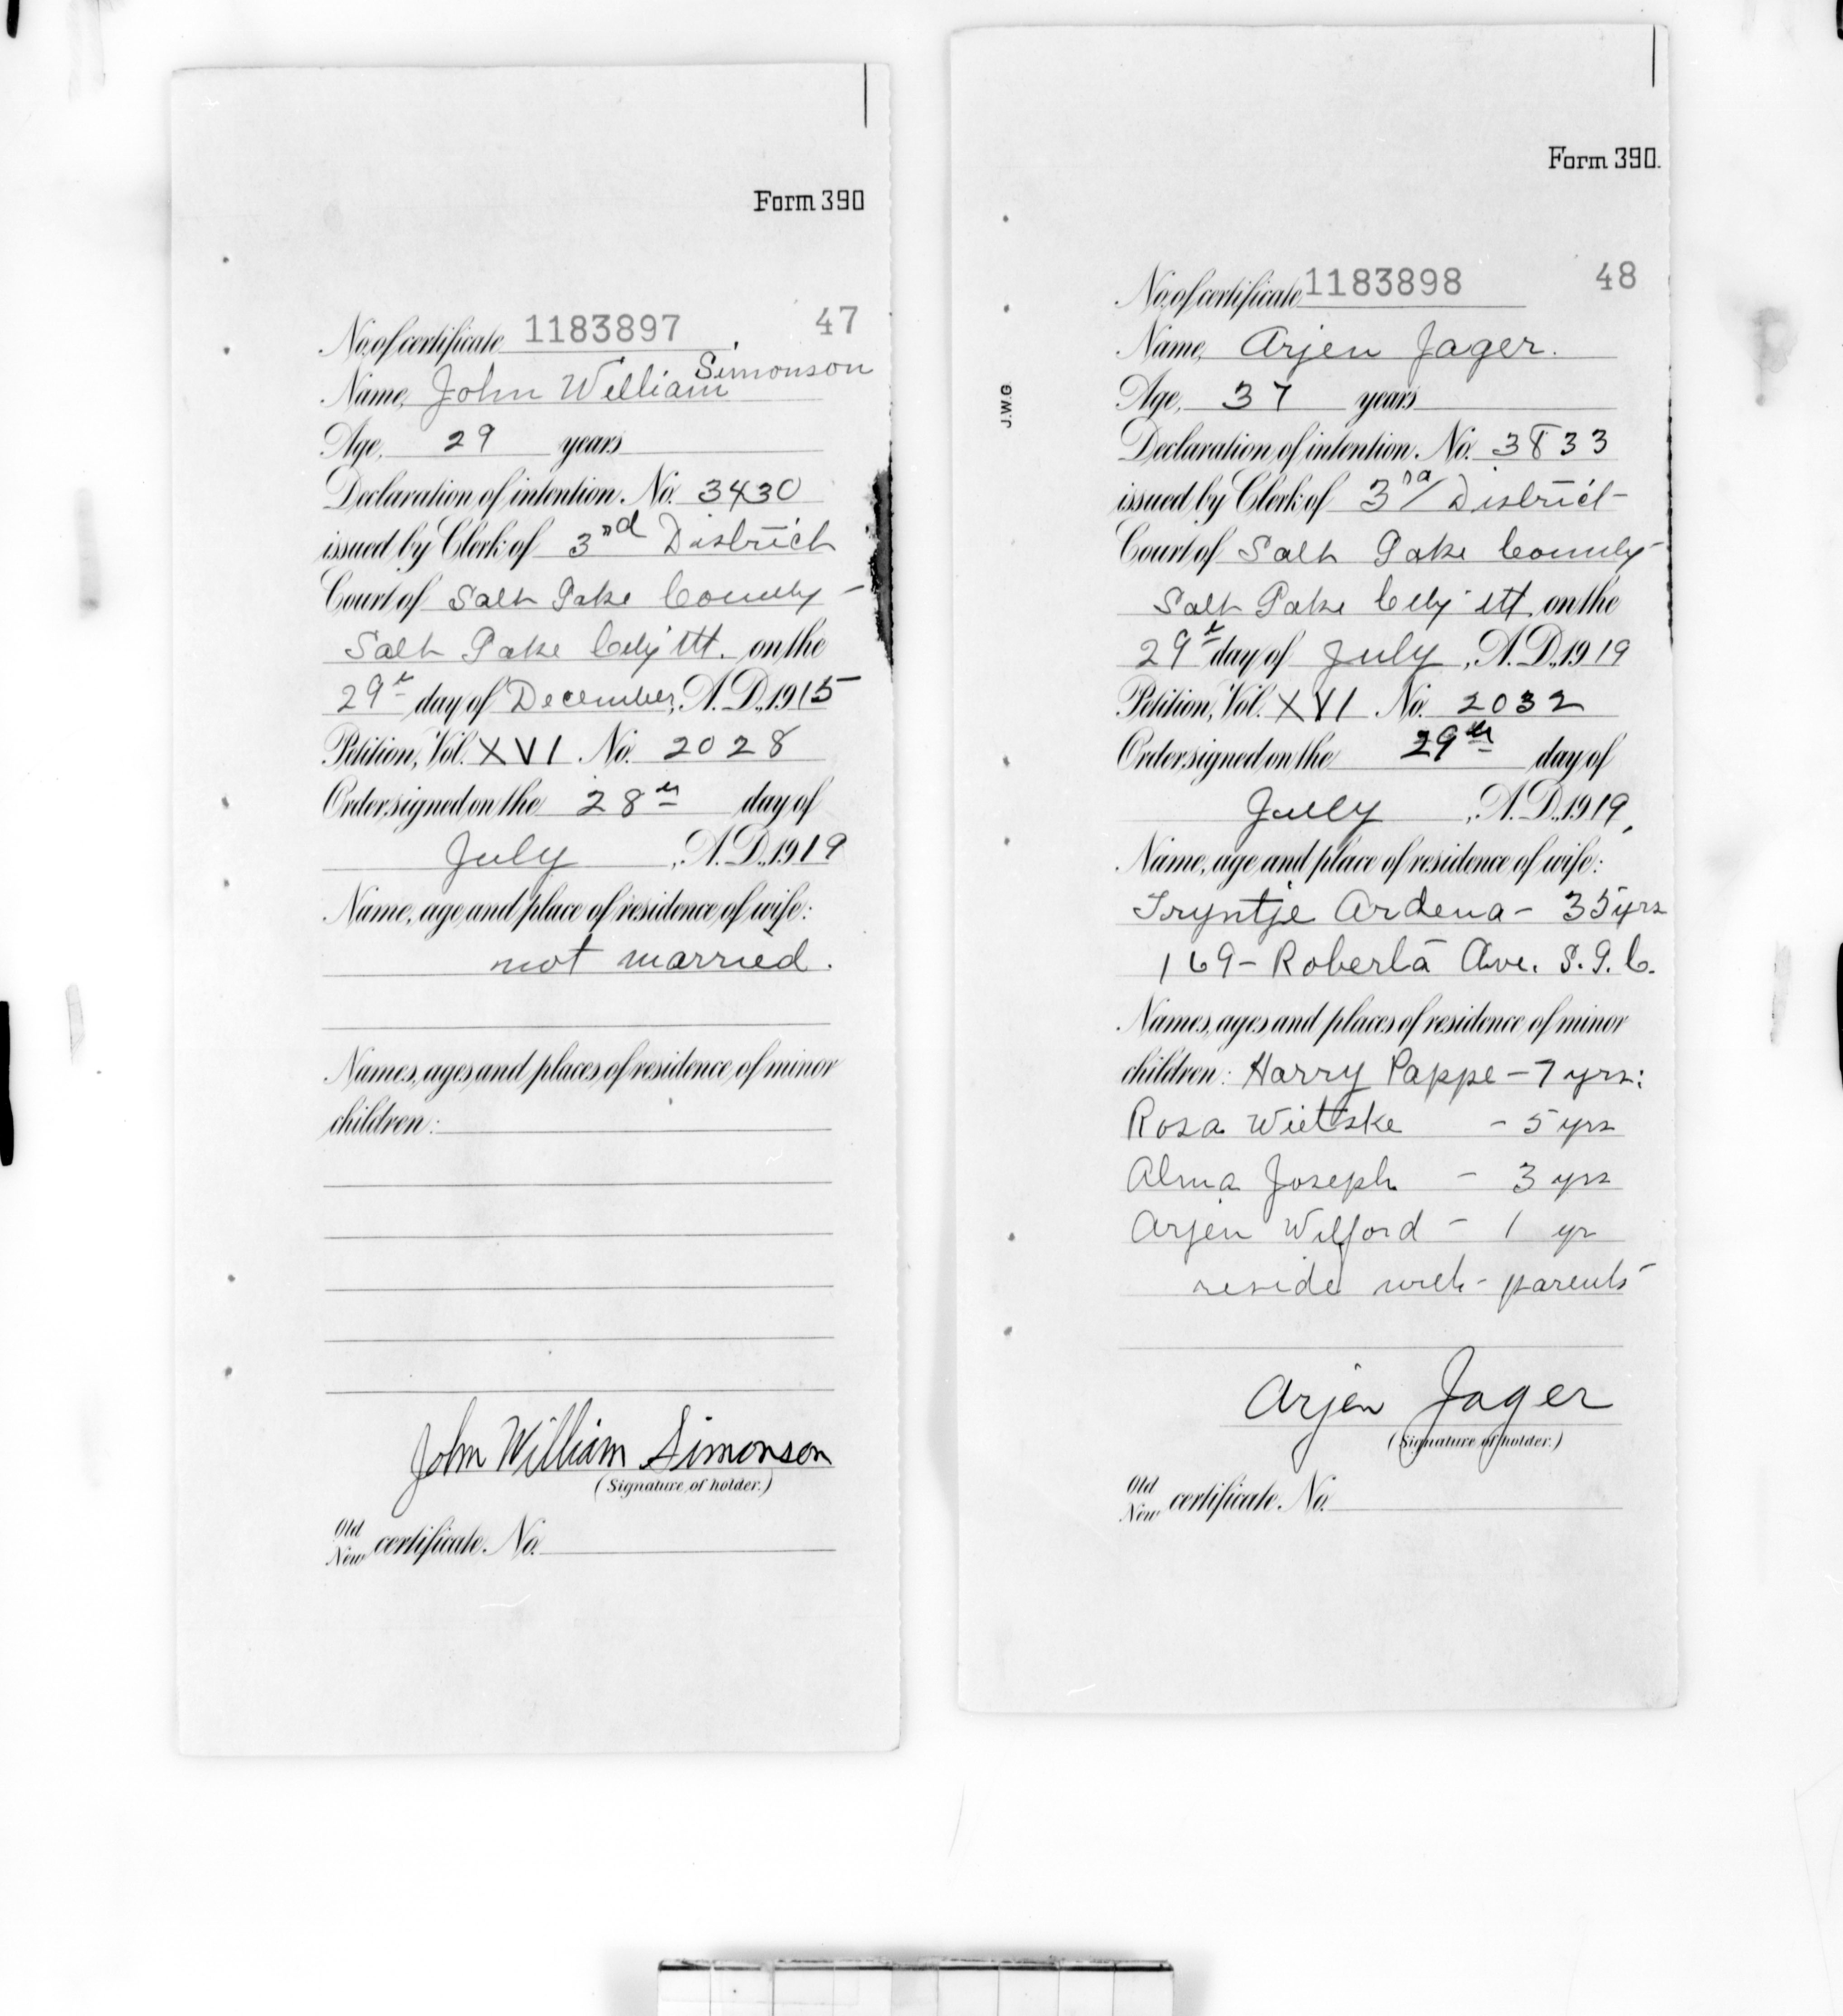 Form 390
No. of certificate 1183897 47
Simonson
Name, John William
Age, 29 years
Declaration of intention, No. 3430
issued by Clerk of 3rd District
Court of Salt Lake County -
Salt Lake City Ut. on the
29th day of December, A. D., 1915
Petition, Vol. XVI No. 2028
Order signed on the 28th day of
July, A. D., 1919
Name, age and place of residence of wife:
not married.
Names, ages and places of residence of minor
children:
John William Simonson
(Signature of holder.)
Old
New certificate No.
Form 390.
J.W.G
No. of certificate 1183898 48
Name, Arjen Jager.
Age, 37 years
Declaration of intention, No. 3833
issued by Clerk of 3rd District -
Court of Salt Lake County -
Salt Lake City Ut. on the
29th day of July, A. D., 1919
Petition, Vol. XVI No. 2032
Order signed on the 29th day of
July, A. D., 1919,
Name, age and place of residence of wife:
Tryntje Ardena - 35 yrs
169 - Roberta Ave. S. L. C.
Names, ages and places of residence of minor
children: Harry Pappe - 7 yrs:
Rosa Wietske - 5 yrs
Alma Joseph - 3 yrs
Arjen Wilford - 1 yr
reside with - parents
Arjen Jager
(Signature of holder.)
Old
New certificate No.